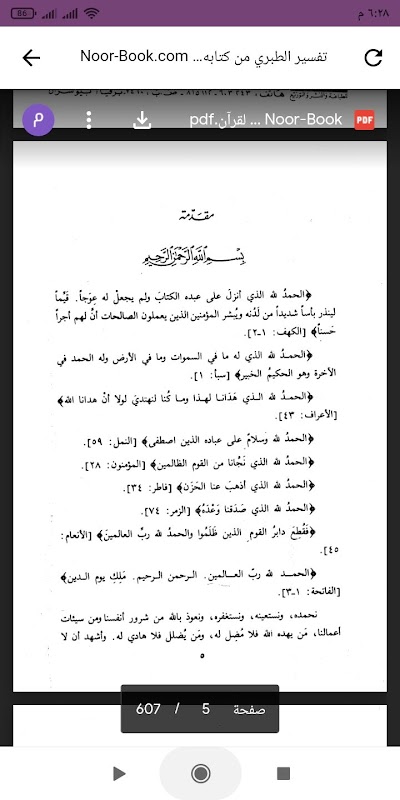 ٦:٢٨ م
86
تفسير الطبري من كتابه... Noor-Book.com
Noor-Book ... لقرآن.pdf
PDF
م
مقدمة
بسم الله الرحمن الرحيم
﴿الحمدُ لله الذي أنزلَ على عبده الكتابَ ولم يجعلْ له عِوَجاً. قَيِّماً
لينذر بأساً شديداً من لَدُنه ويُبشر المؤمنين الذين يعملون الصالحات أنَّ لهم أجراً
حَسناً﴾ [الكهف: ١-٢].
﴿الحمدُ لله الذي له ما في السموات وما في الأرض وله الحمد في
الآخرة وهو الحكيمُ الخبير﴾ [سبأ: ١].
﴿الحمدُ لله الذي هَدَانا لهذا وما كُنا لنهتديَ لولا أنْ هدانا الله﴾
[الأعراف: ٤٣].
﴿الحمدُ لله وَسلامٌ على عباده الذين اصطفى﴾ [النمل: ٥٩].
﴿الحمدُ لله الذي نَجَّانا من القوم الظالمين﴾ [المؤمنون: ٢٨].
﴿الحمدُ لله الذي أذهبَ عنا الحَزَن﴾ [فاطر: ٣٤].
﴿الحمدُ لله الذي صَدَقنا وَعْدَهُ﴾ [الزمر: ٧٤].
﴿فَقُطِعَ دابرُ القومِ الذين ظَلَمُوا والحمدُ لله ربِّ العالمينَ﴾ [الأنعام:
٤٥].
﴿الحمد لله ربّ العالمين. الرحمن الرحيم. مَلِكِ يوم الدين﴾
[الفاتحة: ١-٣].
نحمده، ونستعينه، ونستغفره، ونعوذ بالله من شرور أنفسنا ومن سيئات
أعمالنا، مَن يهده الله فلا مُضِل له، ومَن يُضلل فلا هادي له. وأشهد أن لا
٥
صفحة 5 / 607